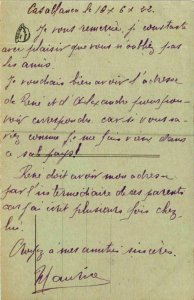 Casablanca le 19 x 6 x 22.
Je vous remercie, je constate
avec plaisir que vous n'oubliez pas
les amis.
Je voudrais bien avoir l'adresse
de René et d'Alexandre pour pou-
voir correspondre car si vous sa-
vez comme je me fais vieux dans
ce sal pays!
René doit avoir mon adresse
par l'intermédiaire de ses parents
car j'ai écrit plusieurs fois chez
lui.
Croyez à mes amitiés sincères.
Maurice